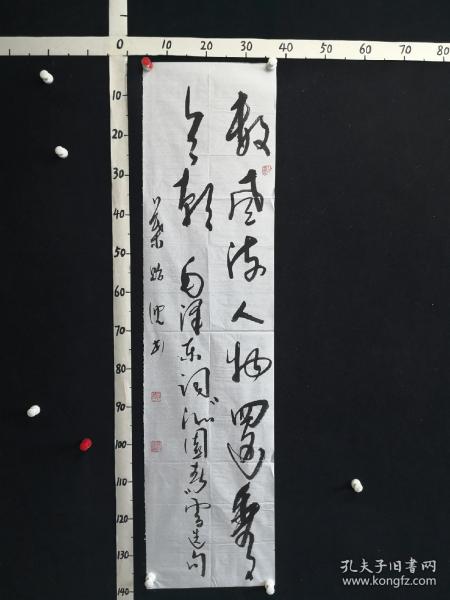 0 10 20 30 40 50 60 70 80
10
20
30
40
50
60
70
80
90
100
110
120
130
140
数風流人物還看
今朝 毛泽东词沁園春雪选句
孔夫子旧书网
www.kongfz.com